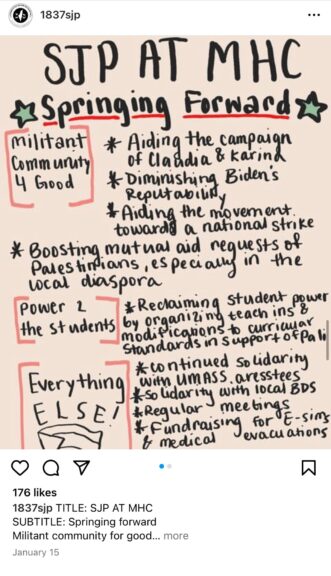 1837sjp
SJP AT MHC
Springing Forward
militant
Community
4 Good
* Aiding the campaign
of Claudia & Karina
* Diminishing Biden's
Reputability
* Aiding the movement
towards a national strike
* Boosting mutual aid requests of
Palestinians, especially in the
local diaspora
Power 2
the students
* Reclaiming student power
by organizing teach ins &
modifications to curricular
Standards in support of Pali
Everything
ELSE!
* continued solidarity
with UMASS. aresstees
* solidarity with local BDS
* Regular meetings
* Fundraising for E-sims
& medical evacuations
176 likes
1837sjp TITLE: SJP AT MHC
SUBTITLE: Springing forward
Militant community for good... more
January 15